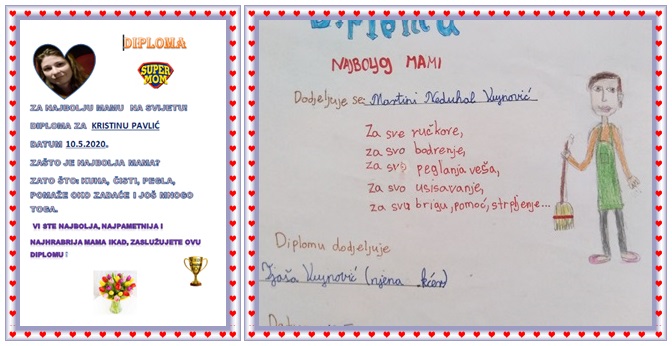 DIPLOMA
SUPER
MOM
ZA NAJBOLJU MAMU NA SVIJETU!
DIPLOMA ZA KRISTINU PAVLIĆ
DATUM 10.5.2020.
ZAŠTO JE NAJBOLJA MAMA?
ZATO ŠTO: KUHA, ČISTI, PEGLA,
POMAŽE OKO ZADAĆE I JOŠ MNOGO
TOGA.
VI STE NAJBOLJA, NAJPAMETNIJA I
NAJHRABRIJA MAMA IKAD, ZASLUŽUJETE OVU
DIPLOMU!
Diploma
NAJBOLJOJ MAMI
Dodjeljuje se Martini Neduhal Vujnović
Za sve ručkove,
za svo bodrenje,
za svo peglanja veša,
za svo usisavanje,
za svu brigu, pomoć, strpljenje...
Diplomu dodjeljuje
Tjaša Vujnović (njena kćer)